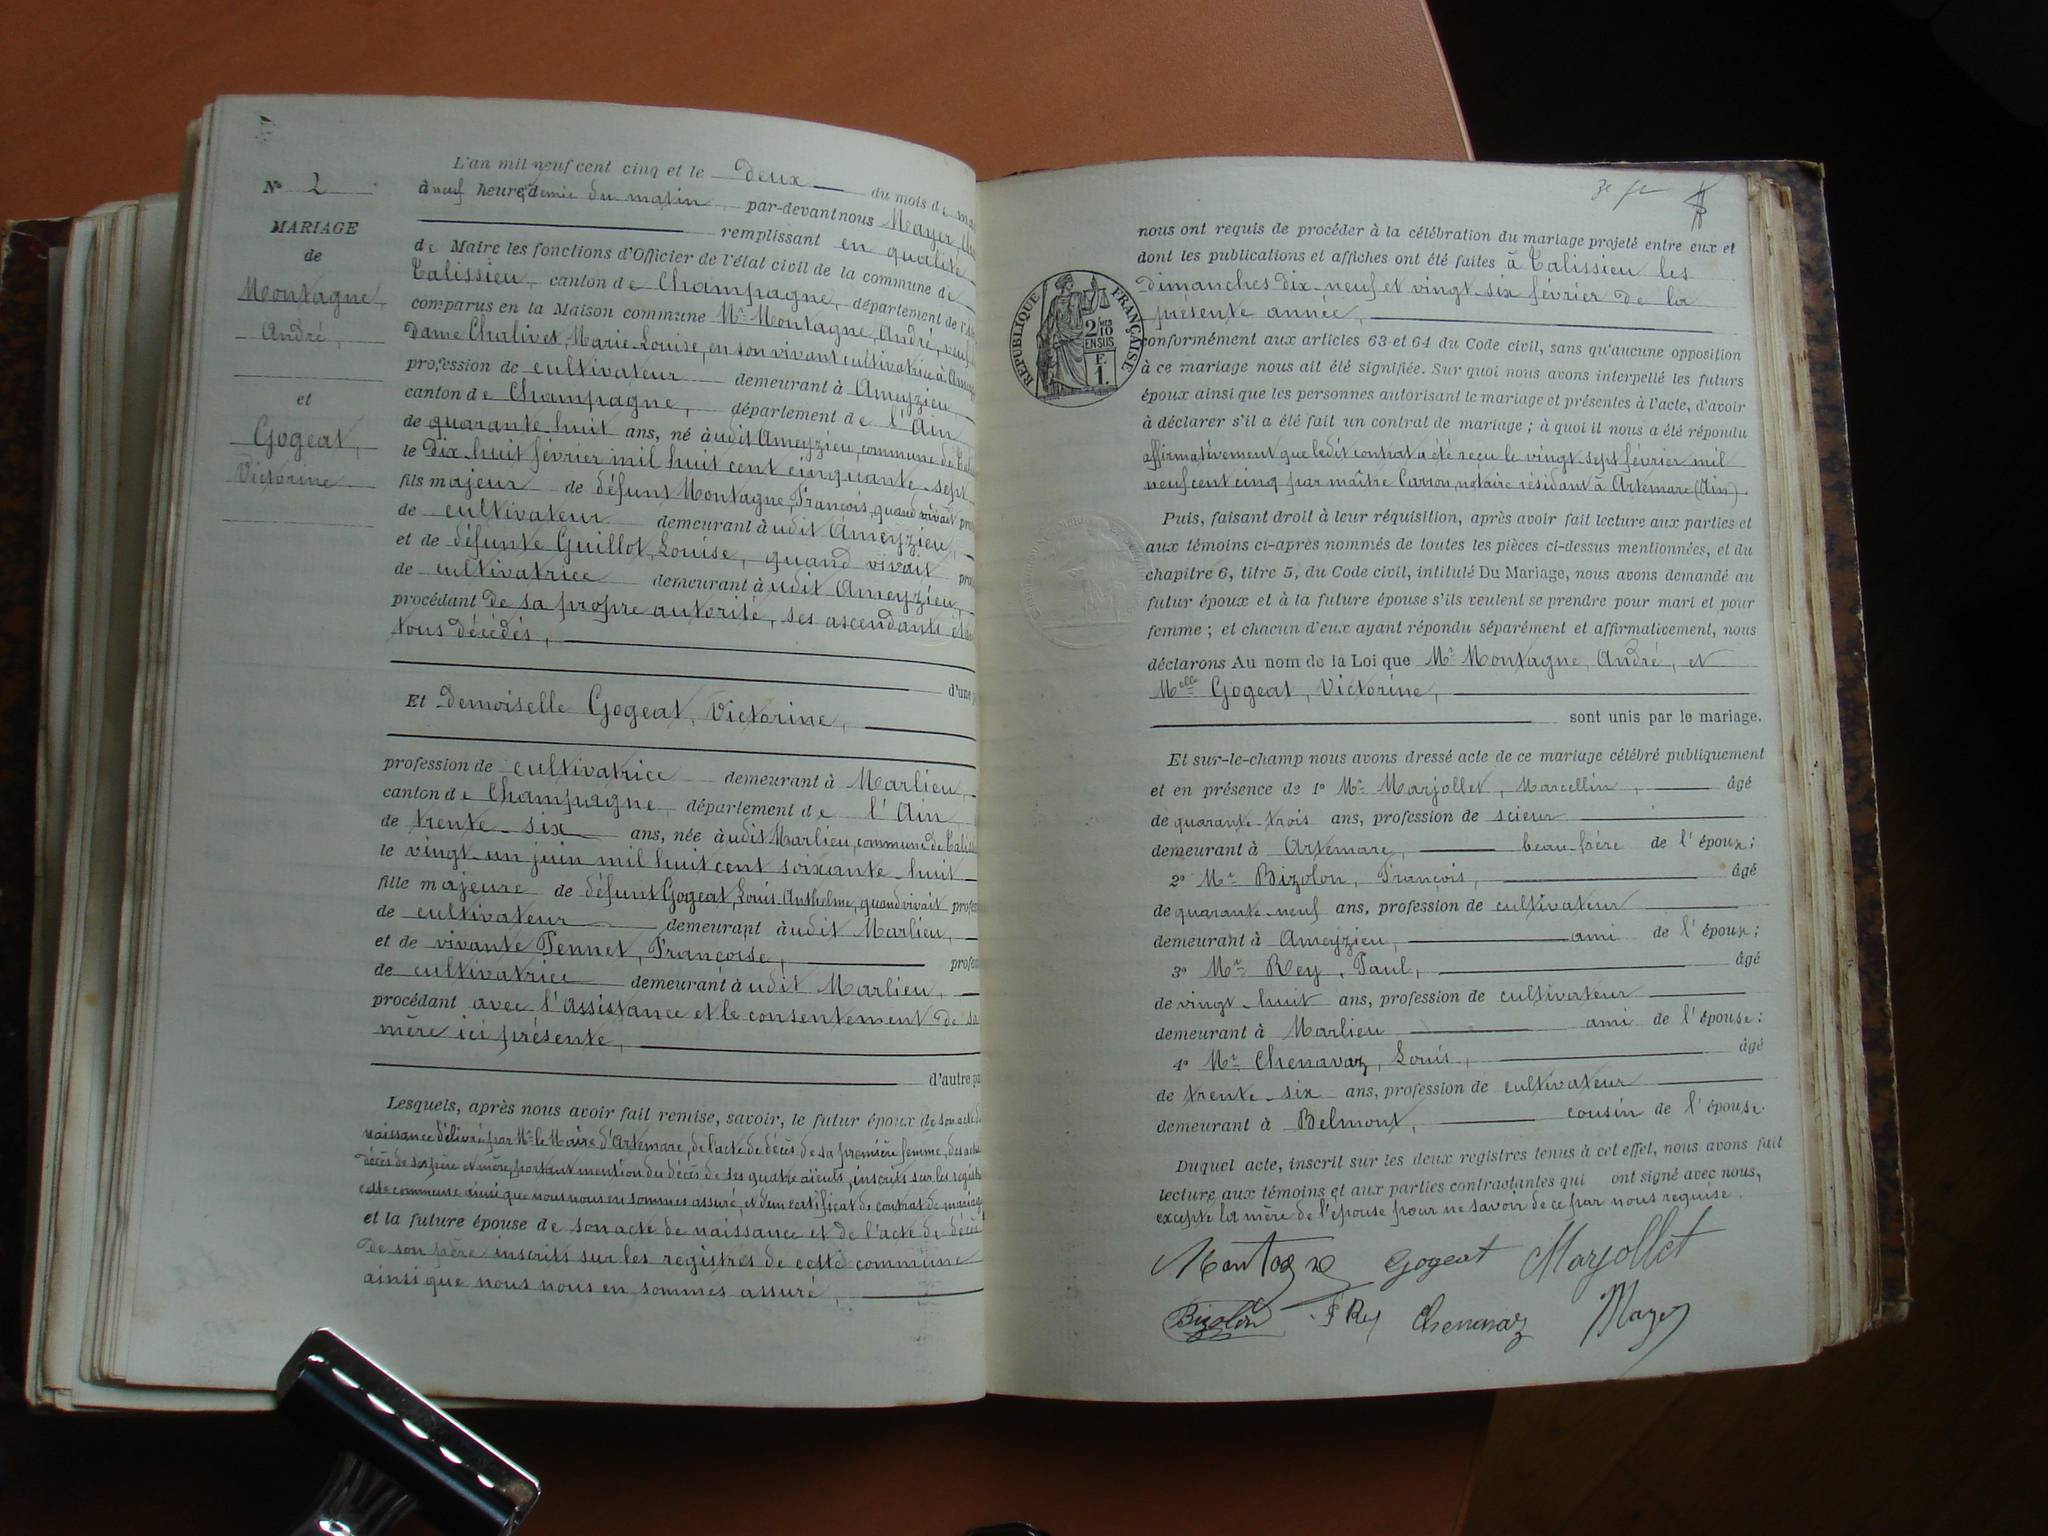 L'an mil neuf cent cinq et le deux du mois de
à neuf heures demie du matin par-devant nous Mayer
remplissant en qualité
de Maire les fonctions d'Officier de l'état civil de la commune de
Talissieu, canton de Champagne, département de l'
comparus en la Maison commune Mr Montagne, André,
Dame Chalivet, Marie-Louise, en son vivant cultivatrice à
profession de cultivateur demeurant à Ameyzieu,
canton de Champagne, département de l'Ain
de quarante huit ans, né à udit Ameyzieu, commune de
le dix-huit février mil huit cent cinquante-sept
fils majeur de défunt Montagne, François, quand vivait
de cultivateur demeurant à udit Ameyzieu,
et de défunte Guillot, Louise, quand vivait
de cultivatrice demeurant à udit Ameyzieu,
procédant de sa propre autorité, ses ascendants
tous décédés,
d'une
Et Demoiselle Gogeat, Victorine,
profession de cultivatrice demeurant à Marlieu,
canton de Champagne département de l'Ain
de trente-six ans, née à udit Marlieu, commune de
le vingt-un juin mil huit cent soixante-huit
fille majeure de défunt Gogeat, Louis-Anthelme, quand vivait
de cultivateur demeurant à udit Marlieu,
et de vivante Pennet, Françoise,
de cultivatrice demeurant à udit Marlieu,
procédant avec l'assistance et le consentement de sa
mère ici présente,
d'autre
Lesquels, après nous avoir fait remise, savoir, le futur époux de son acte de
naissance délivré par Mr le Maire d'Artemare, de l'acte de décès de sa première femme, des
décès de ses père et mère, portant mention du décès de ses quatre aïeuls, inscrits sur les
cette commune ainsi que nous nous en sommes assuré, et d'un certificat de contrat de mariage
et la future épouse de son acte de naissance et de l'acte de décès
de son père inscrits sur les registres de cette commune
ainsi que nous nous en sommes assuré,
No 2
MARIAGE
de
Montagne,
André,
et
Gogeat,
Victorine
RÉPUBLIQUE FRANÇAISE
2 10
EN SUS
F.
1.
nous ont requis de procéder à la célébration du mariage projeté entre eux et
dont les publications et affiches ont été faites à Talissieu les
dimanches dix-neuf et vingt-six février de la
présente année,
conformément aux articles 63 et 64 du Code civil, sans qu'aucune opposition
à ce mariage nous ait été signifiée. Sur quoi nous avons interpellé les futurs
époux ainsi que les personnes autorisant le mariage et présentes à l'acte, d'avoir
à déclarer s'il a été fait un contrat de mariage ; à quoi il nous a été répondu
affirmativement que ledit contrat a été reçu le vingt-sept février mil
neuf cent cinq par maître Carron, notaire résidant à Artemare (Ain).
Puis, faisant droit à leur réquisition, après avoir fait lecture aux parties et
aux témoins ci-après nommés de toutes les pièces ci-dessus mentionnées, et du
chapitre 6, titre 5, du Code civil, intitulé Du Mariage, nous avons demandé au
futur époux et à la future épouse s'ils veulent se prendre pour mari et pour
femme ; et chacun d'eux ayant répondu séparément et affirmativement, nous
déclarons Au nom de la Loi que Mr Montagne, André, et
Melle Gogeat, Victorine,
sont unis par le mariage.
Et sur-le-champ nous avons dressé acte de ce mariage célébré publiquement
et en présence de 1o Mr Marjollet, Marcellin, âgé
de quarante-trois ans, profession de scieur
demeurant à Artemare, beau-frère de l'époux;
2o Mr Bizolon, François, âgé
de quarante-neuf ans, profession de cultivateur
demeurant à Ameyzieu, ami de l'époux;
3o Mr Rey, Paul, âgé
de vingt-huit ans, profession de cultivateur
demeurant à Marlieu ami de l'épouse;
4o Mr Chenavaz, Louis, âgé
de trente-six ans, profession de cultivateur
demeurant à Belmont, cousin de l'épouse.
Duquel acte, inscrit sur les deux registres tenus à cet effet, nous avons fait
lecture aux témoins et aux parties contractantes qui ont signé avec nous,
excepté la mère de l'épouse pour ne savoir de ce par nous requise.
Montagne Gogeat Marjollet
Bizolon Rey Chenavaz Mayer